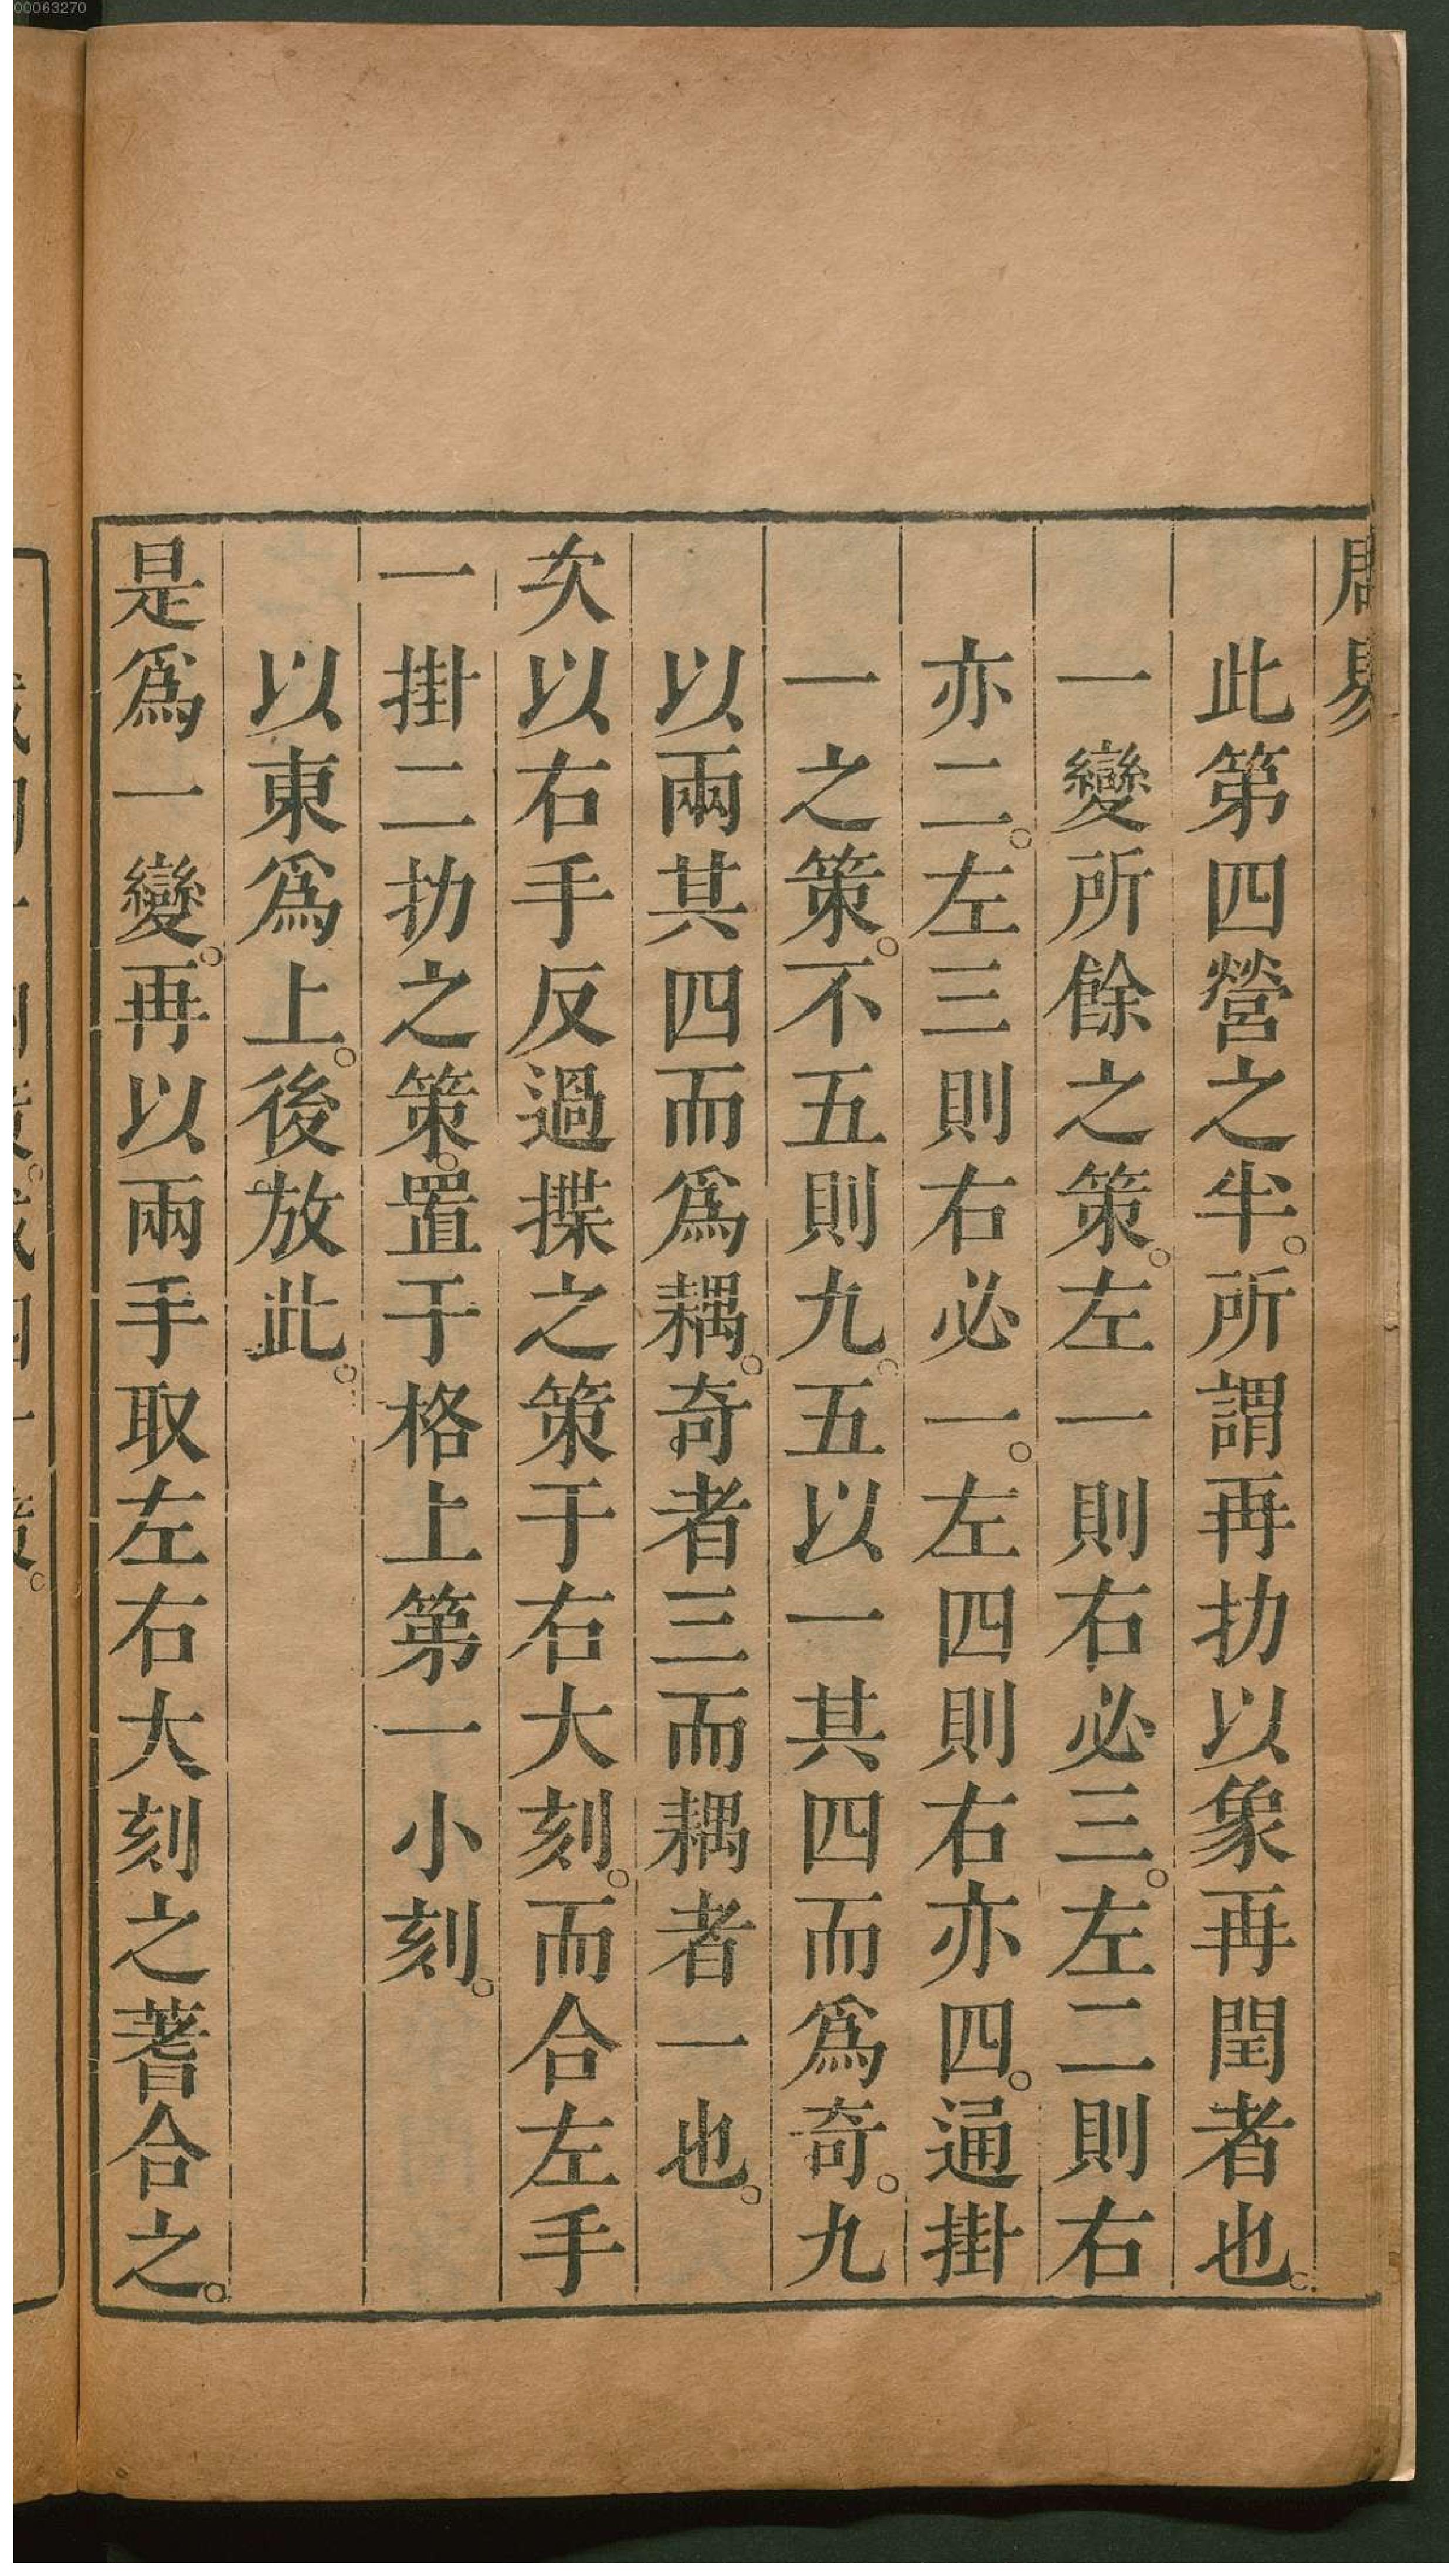 00063270
周易
此第四營之半。所謂再扐以象再閏者也。
一變所餘之策。左一則右必三。左二則右
亦二。左三則右必一。左四則右亦四。通掛
一之策。不五則九。五以一其四而爲奇。九
以兩其四而爲耦。奇者三而耦者一也。
次以右手反過揲之策于右大刻。而合左手
一掛二扐之策。置于格上第一小刻。
以東爲上。後放此。
是爲一變。再以兩手取左右大刻之蓍合之。